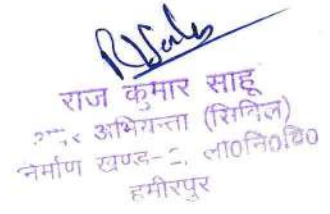 राज कुमार साहू
अभियन्ता (सिविल)
निर्माण खण्ड- लो०नि०वि०
हमीरपुर